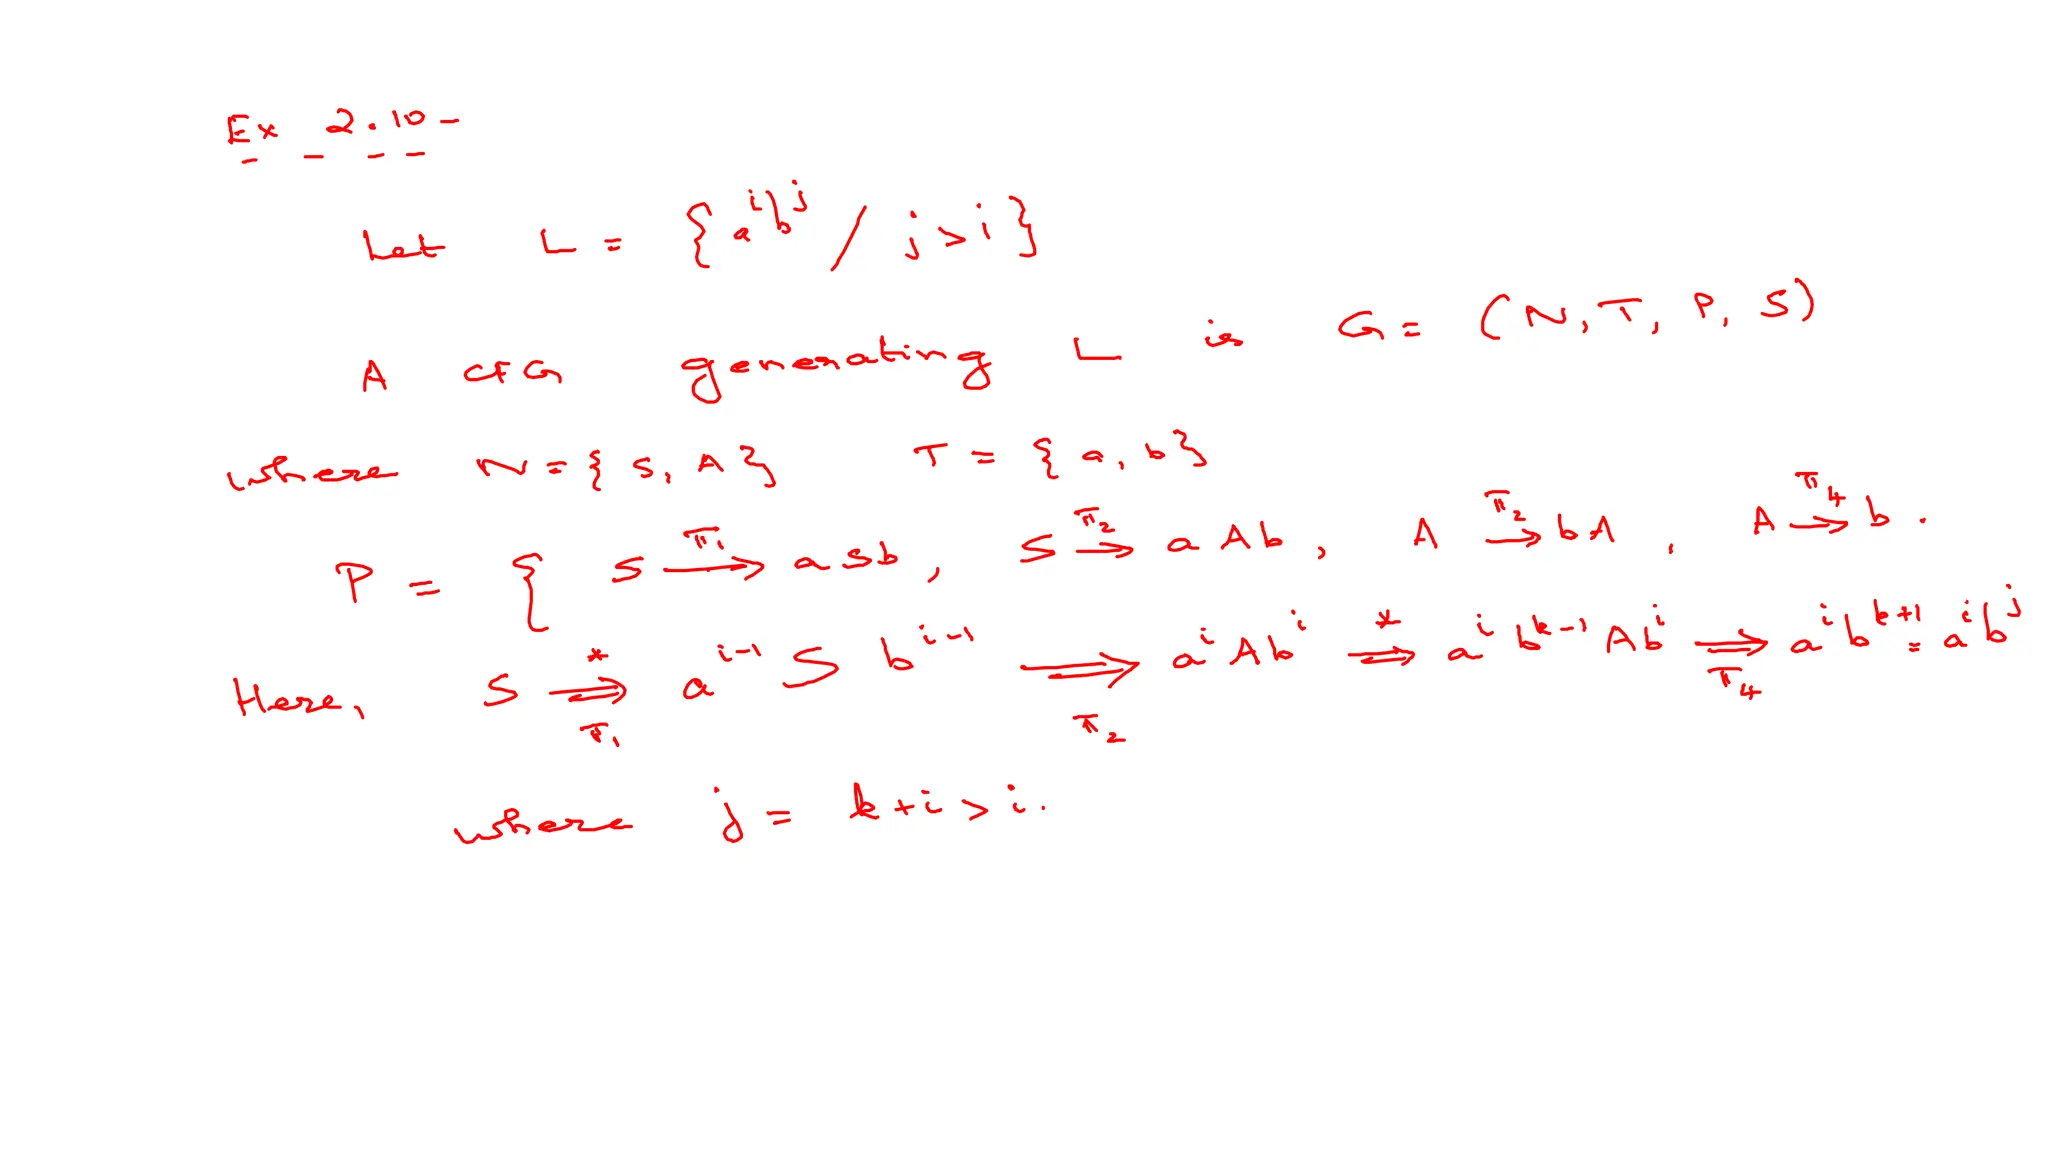 Ex 2.10 -
Let L = {aⁱbʲ / j > i}
A CFG generating L is G = (N, T, P, S)
where N = {S, A} T = {a, b}
P = { S →(π₁) aSb, S →(π₂) aAb, A →(π₂) bA, A →(π₄) b.
Here, S ⇒*(π₁) aⁱ⁻¹ S bⁱ⁻¹ ⇒(π₂) aⁱAbⁱ ⇒* aⁱbᵏ⁻¹Abⁱ ⇒(π₄) aⁱbᵏ⁺ⁱ = aⁱbʲ
where j = k+i > i.